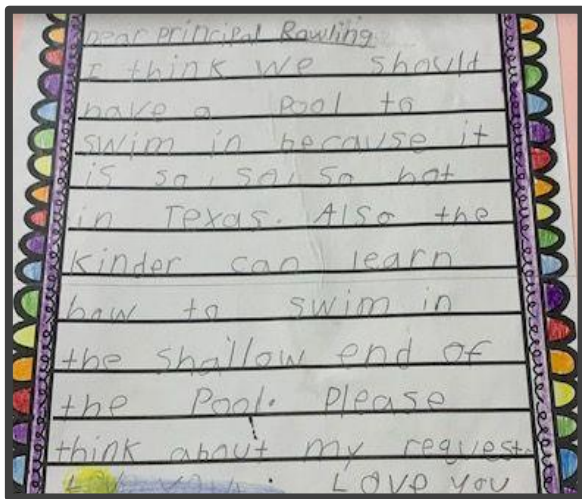 Dear principal Rowling
I think we should
have a Pool to
swim in because it
is so, so, so hot
in Texas. Also the
kinder can learn
how to swim in
the shallow end of
the Pool. Please
think about my request.
Love you